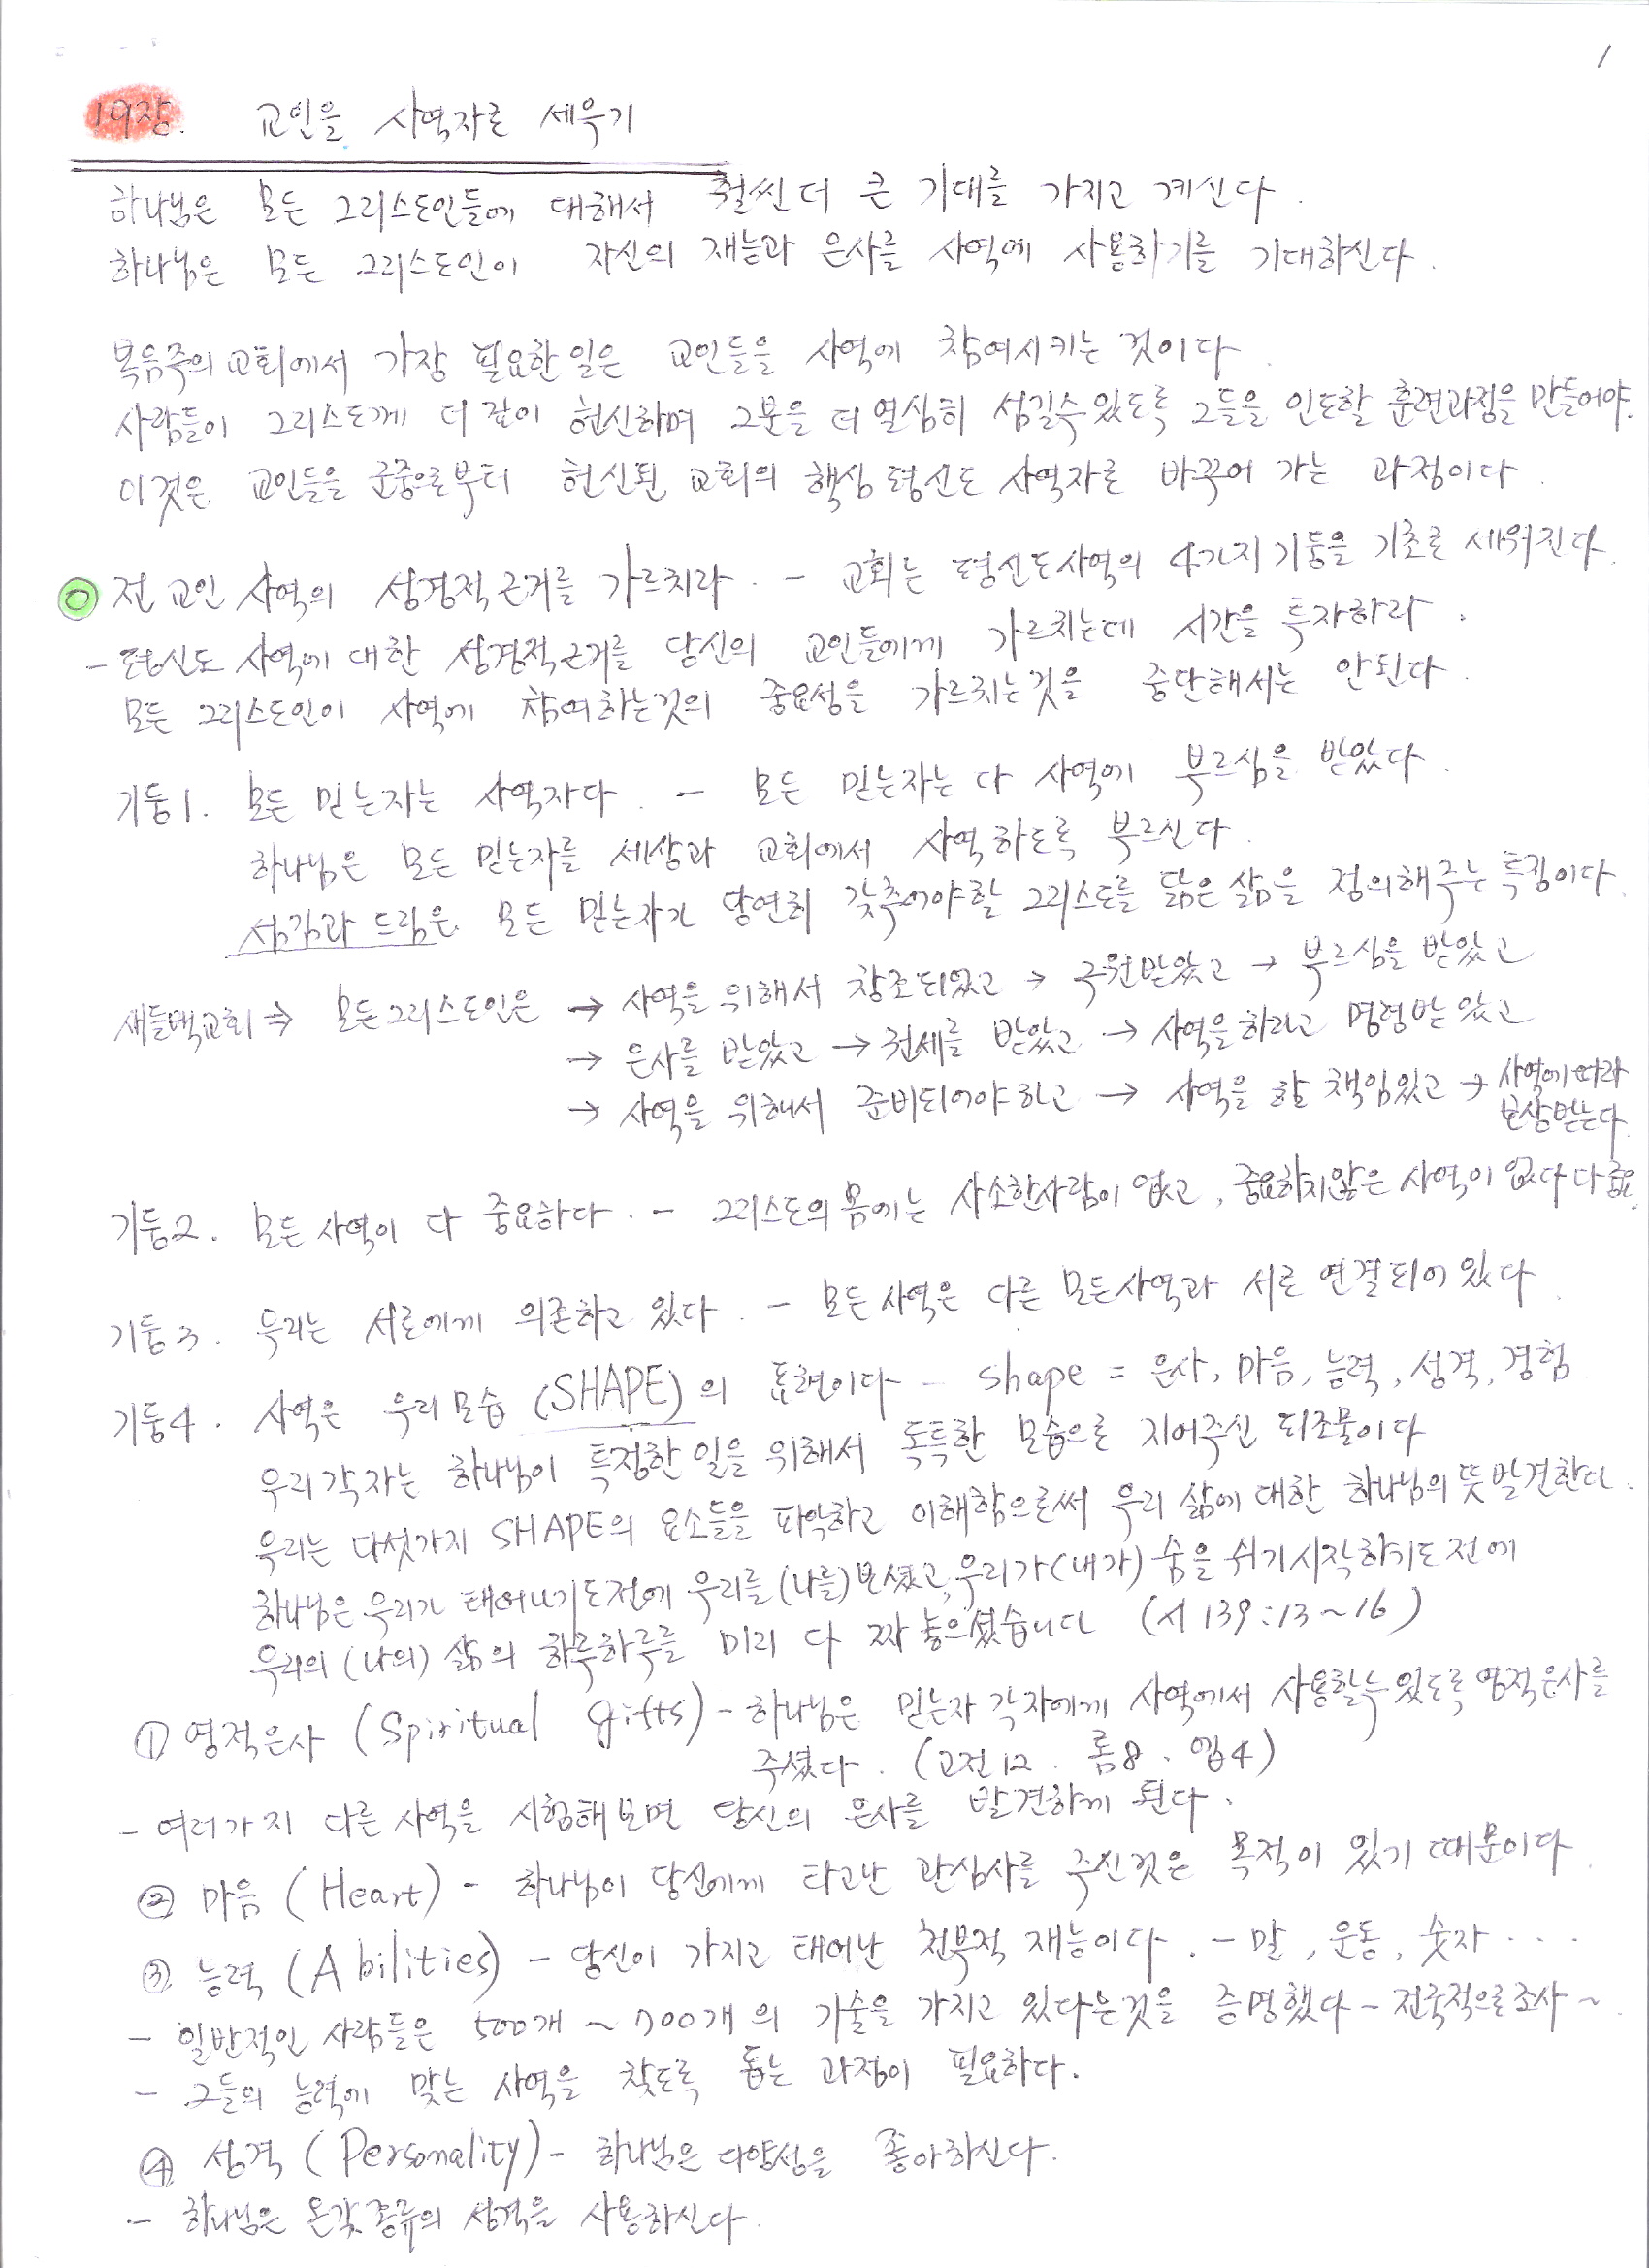 1
19장. 교인을 사역자로 세우기
하나님은 모든 그리스도인들에 대해서 훨씬 더 큰 기대를 가지고 계신다.
하나님은 모든 그리스도인이 자신의 재능과 은사를 사역에 사용하기를 기대하신다.
복음주의 교회에서 가장 필요한 일은 교인들을 사역에 참여시키는 것이다.
사람들이 그리스도께 더 깊이 헌신하며 그분을 더 열심히 섬길수 있도록 그들을 인도할 훈련과정을 만들어야.
이것은 교인들을 군중으로부터 헌신된 교회의 핵심 평신도 사역자로 바꾸어 가는 과정이다.
◎ 전 교인 사역의 성경적 근거를 가르치라. - 교회는 평신도사역의 4가지 기둥을 기초로 세워진다.
- 평신도 사역에 대한 성경적 근거를 당신의 교인들에게 가르치는데 시간을 투자하라.
모든 그리스도인이 사역에 참여하는것의 중요성을 가르치는것을 중단해서는 안된다.
기둥1. 모든 믿는자는 사역자다. - 모든 믿는자는 다 사역에 부르심을 받았다.
하나님은 모든 믿는자를 세상과 교회에서 사역하도록 부르신다.
섬김과 드림은 모든 믿는자가 당연히 갖추어야할 그리스도를 닮은 삶을 정의해주는 특징이다.
새들백교회 ⇒ 모든그리스도인은 → 사역을 위해서 창조되었고 → 구원받았고 → 부르심을 받았고
→ 은사를 받았고 → 권세를 받았고 → 사역을하라고 명령받았고
→ 사역을 위해서 준비되어야하고 → 사역을 할 책임있고 → 사역에따라
보상받는다.
기둥2. 모든 사역이 다 중요하다. - 그리스도의 몸에는 사소한사람이 없고, 중요하지않은 사역이 없다 다 중요.
기둥3. 우리는 서로에게 의존하고 있다. - 모든 사역은 다른 모든사역과 서로 연결되어 있다.
기둥4. 사역은 우리 모습 (SHAPE)의 표현이다 - shape = 은사, 마음, 능력, 성격, 경험
우리 각자는 하나님이 특정한 일을 위해서 독특한 모습으로 지어주신 피조물이다
우리는 다섯가지 SHAPE의 요소들을 파악하고 이해함으로써 우리 삶에 대한 하나님의 뜻 발견한다.
하나님은 우리가 태어나기도전에 우리를 (나를) 보셨고, 우리가(내가) 숨을 쉬기시작하기도 전에
우리의 (나의) 삶의 하루하루를 미리 다 짜 놓으셨습니다 (시 139:13~16)
① 영적은사 (Spiritual gifts) - 하나님은 믿는자 각자에게 사역에서 사용할수 있도록 영적은사를
주셨다. (고전12. 롬8. 엡4)
- 여러가지 다른 사역을 시험해보면 당신의 은사를 발견하게 된다.
② 마음 (Heart) - 하나님이 당신에게 타고난 관심사를 주신것은 목적이 있기 때문이다.
③ 능력 (Abilities) - 당신이 가지고 태어난 천부적 재능이다. - 말, 운동, 숫자 ....
- 일반적인 사람들은 500개 ~ 700개의 기술을 가지고 있다는것을 증명했다 - 전국적으로조사 ~
- 그들의 능력에 맞는 사역을 찾도록 돕는 과정이 필요하다.
④ 성격 (Personality) - 하나님은 다양성을 좋아하신다.
- 하나님은 온갖 종류의 성격을 사용하신다.